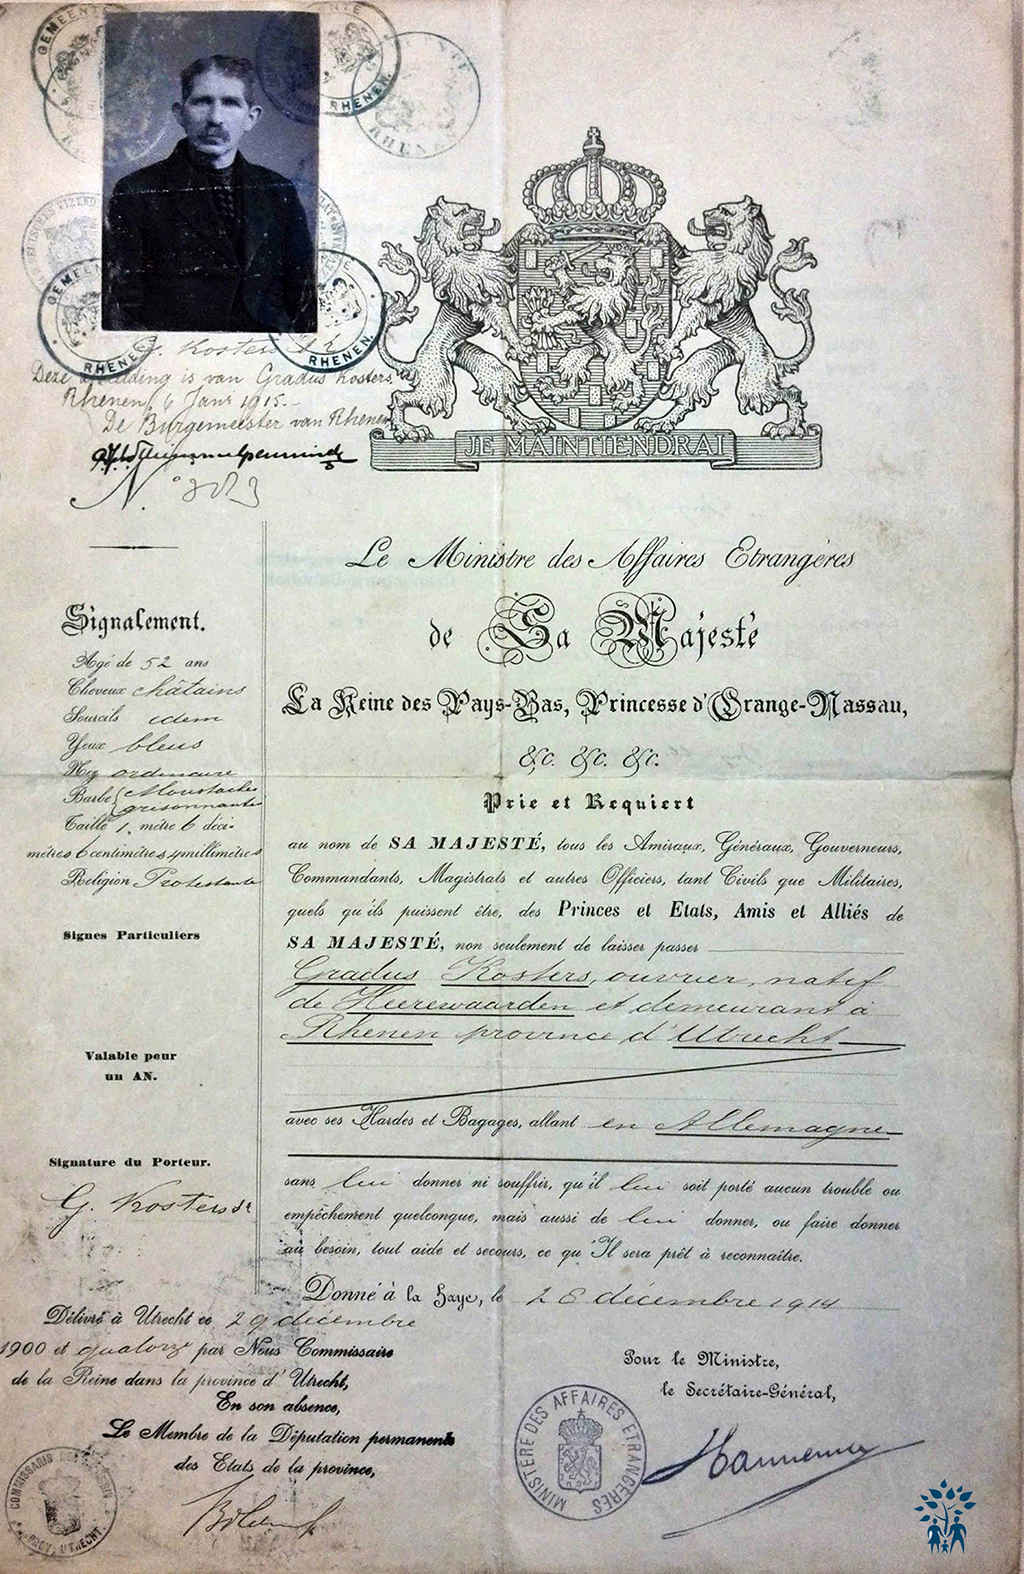 GEMEENTE RHENEN.
GEMEENTE RHENEN.
GEMEENTE RHENEN.
GEMEENTE RHENEN.
G. Kosters
Deze afbeelding is van Gradus Kosters
Rhenen, 6 Janr 1915.-
De Burgemeester van Rhenen
No
JE MAINTIENDRAI
Le Ministre des Affaires Etrangères
de Sa Majesté
La Reine des Pays-Bas, Princesse d'Orange-Nassau,
&c. &c. &c.
Prie et Requiert
au nom de SA MAJESTÉ, tous les Amiraux, Généraux, Gouverneurs,
Commandants, Magistrats et autres Officiers, tant Civils que Militaires,
quels qu'ils puissent être, des Princes et Etats, Amis et Alliés de
SA MAJESTÉ, non seulement de laisser passer
Gradus Kosters, ouvrier, natif
de Heerewaarden et demeurant à
Rhenen province d'Utrecht
avec ses Hardes et Bagages, allant en Allemagne
sans lui donner ni souffrir, qu'il lui soit porté aucun trouble ou
empêchement quelconque, mais aussi de lui donner, ou faire donner
au besoin, tout aide et secours, ce qu'Il sera prêt à reconnaître.
Donné à la Haye, le 28 décembre 1914
Pour le Ministre,
le Secrétaire-Général,
Hannema
MINISTÈRE DES AFFAIRES ETRANGÈRES
Signalement.
Agé de 52 ans
Cheveux châtains
Sourcils idem
Yeux bleus
Nez ordinaire
Barbe Moustaches
grisonnante
Taille 1. mètre 6 déci-
mètres 6 centimètres 4 millimètres
Religion Protestante
Signes Particuliers
Valable pour
un AN.
Signature du Porteur.
G. Kosters
Délivré à Utrecht ce 29 décembre
1900 et quatorze par Nous Commissaire
de la Reine dans la province d'Utrecht,
En son absence,
Le Membre de la Députation permanente
des Etats de la province,
COMMISSARIS DER KONINGIN
PROV. UTRECHT.